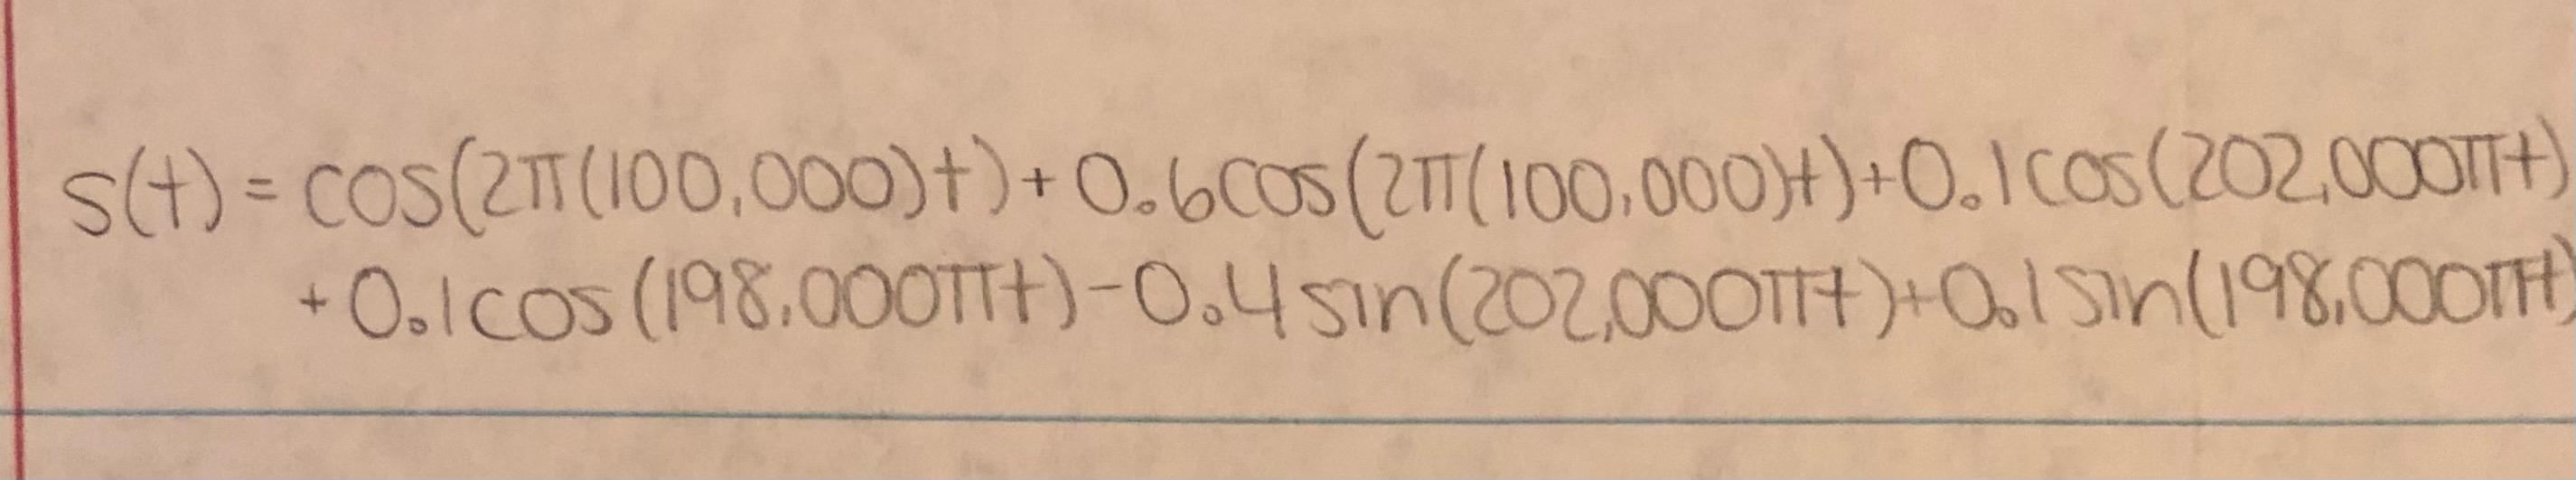 s(t) = cos(2π(100,000)t) + 0.6cos(2π(100,000)t) + 0.1cos(202,000πt)
+ 0.1cos(198,000πt) - 0.4sin(202,000πt) + 0.1sin(198,000πt)